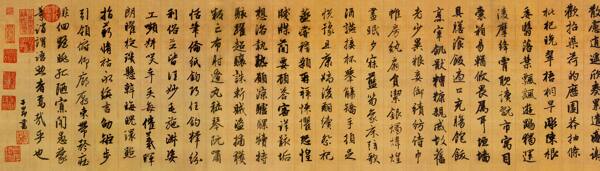 散慮逍遙欣奏累遣慼謝
歡招渠荷的歷園莽抽條
枇杷晚翠梧桐早凋陳根
委翳落葉飄颻遊鵾獨運
凌摩絳霄耽讀翫市寓目
囊箱易輶攸畏屬耳垣牆
具膳飡飯適口充腸飽飫
烹宰飢猒糟糠親戚故舊
老少異糧妾御績紡侍巾
帷房紈扇員潔銀燭煒煌
晝眠夕寐藍筍象床弦歌
酒讌接杯舉觴矯手頓足
悅豫且康嫡後嗣續祭祀
蒸嘗稽顙再拜悚懼恐惶
牋牒簡要顧答審詳骸垢
想浴執熱願涼驢騾犢特
駭躍超驤誅斬賊盜捕獲
叛亡布射遼丸嵇琴阮嘯
恬筆倫紙鈞巧任釣釋紛
利俗並皆佳妙毛施淑姿
工顰妍笑年矢每催羲暉
朗曜琁璣懸斡晦魄環照
指薪脩祜永綏吉劭矩步
引領俯仰廊廟束帶矜莊
徘徊瞻眺孤陋寡聞愚蒙
等誚謂語助者焉哉乎也